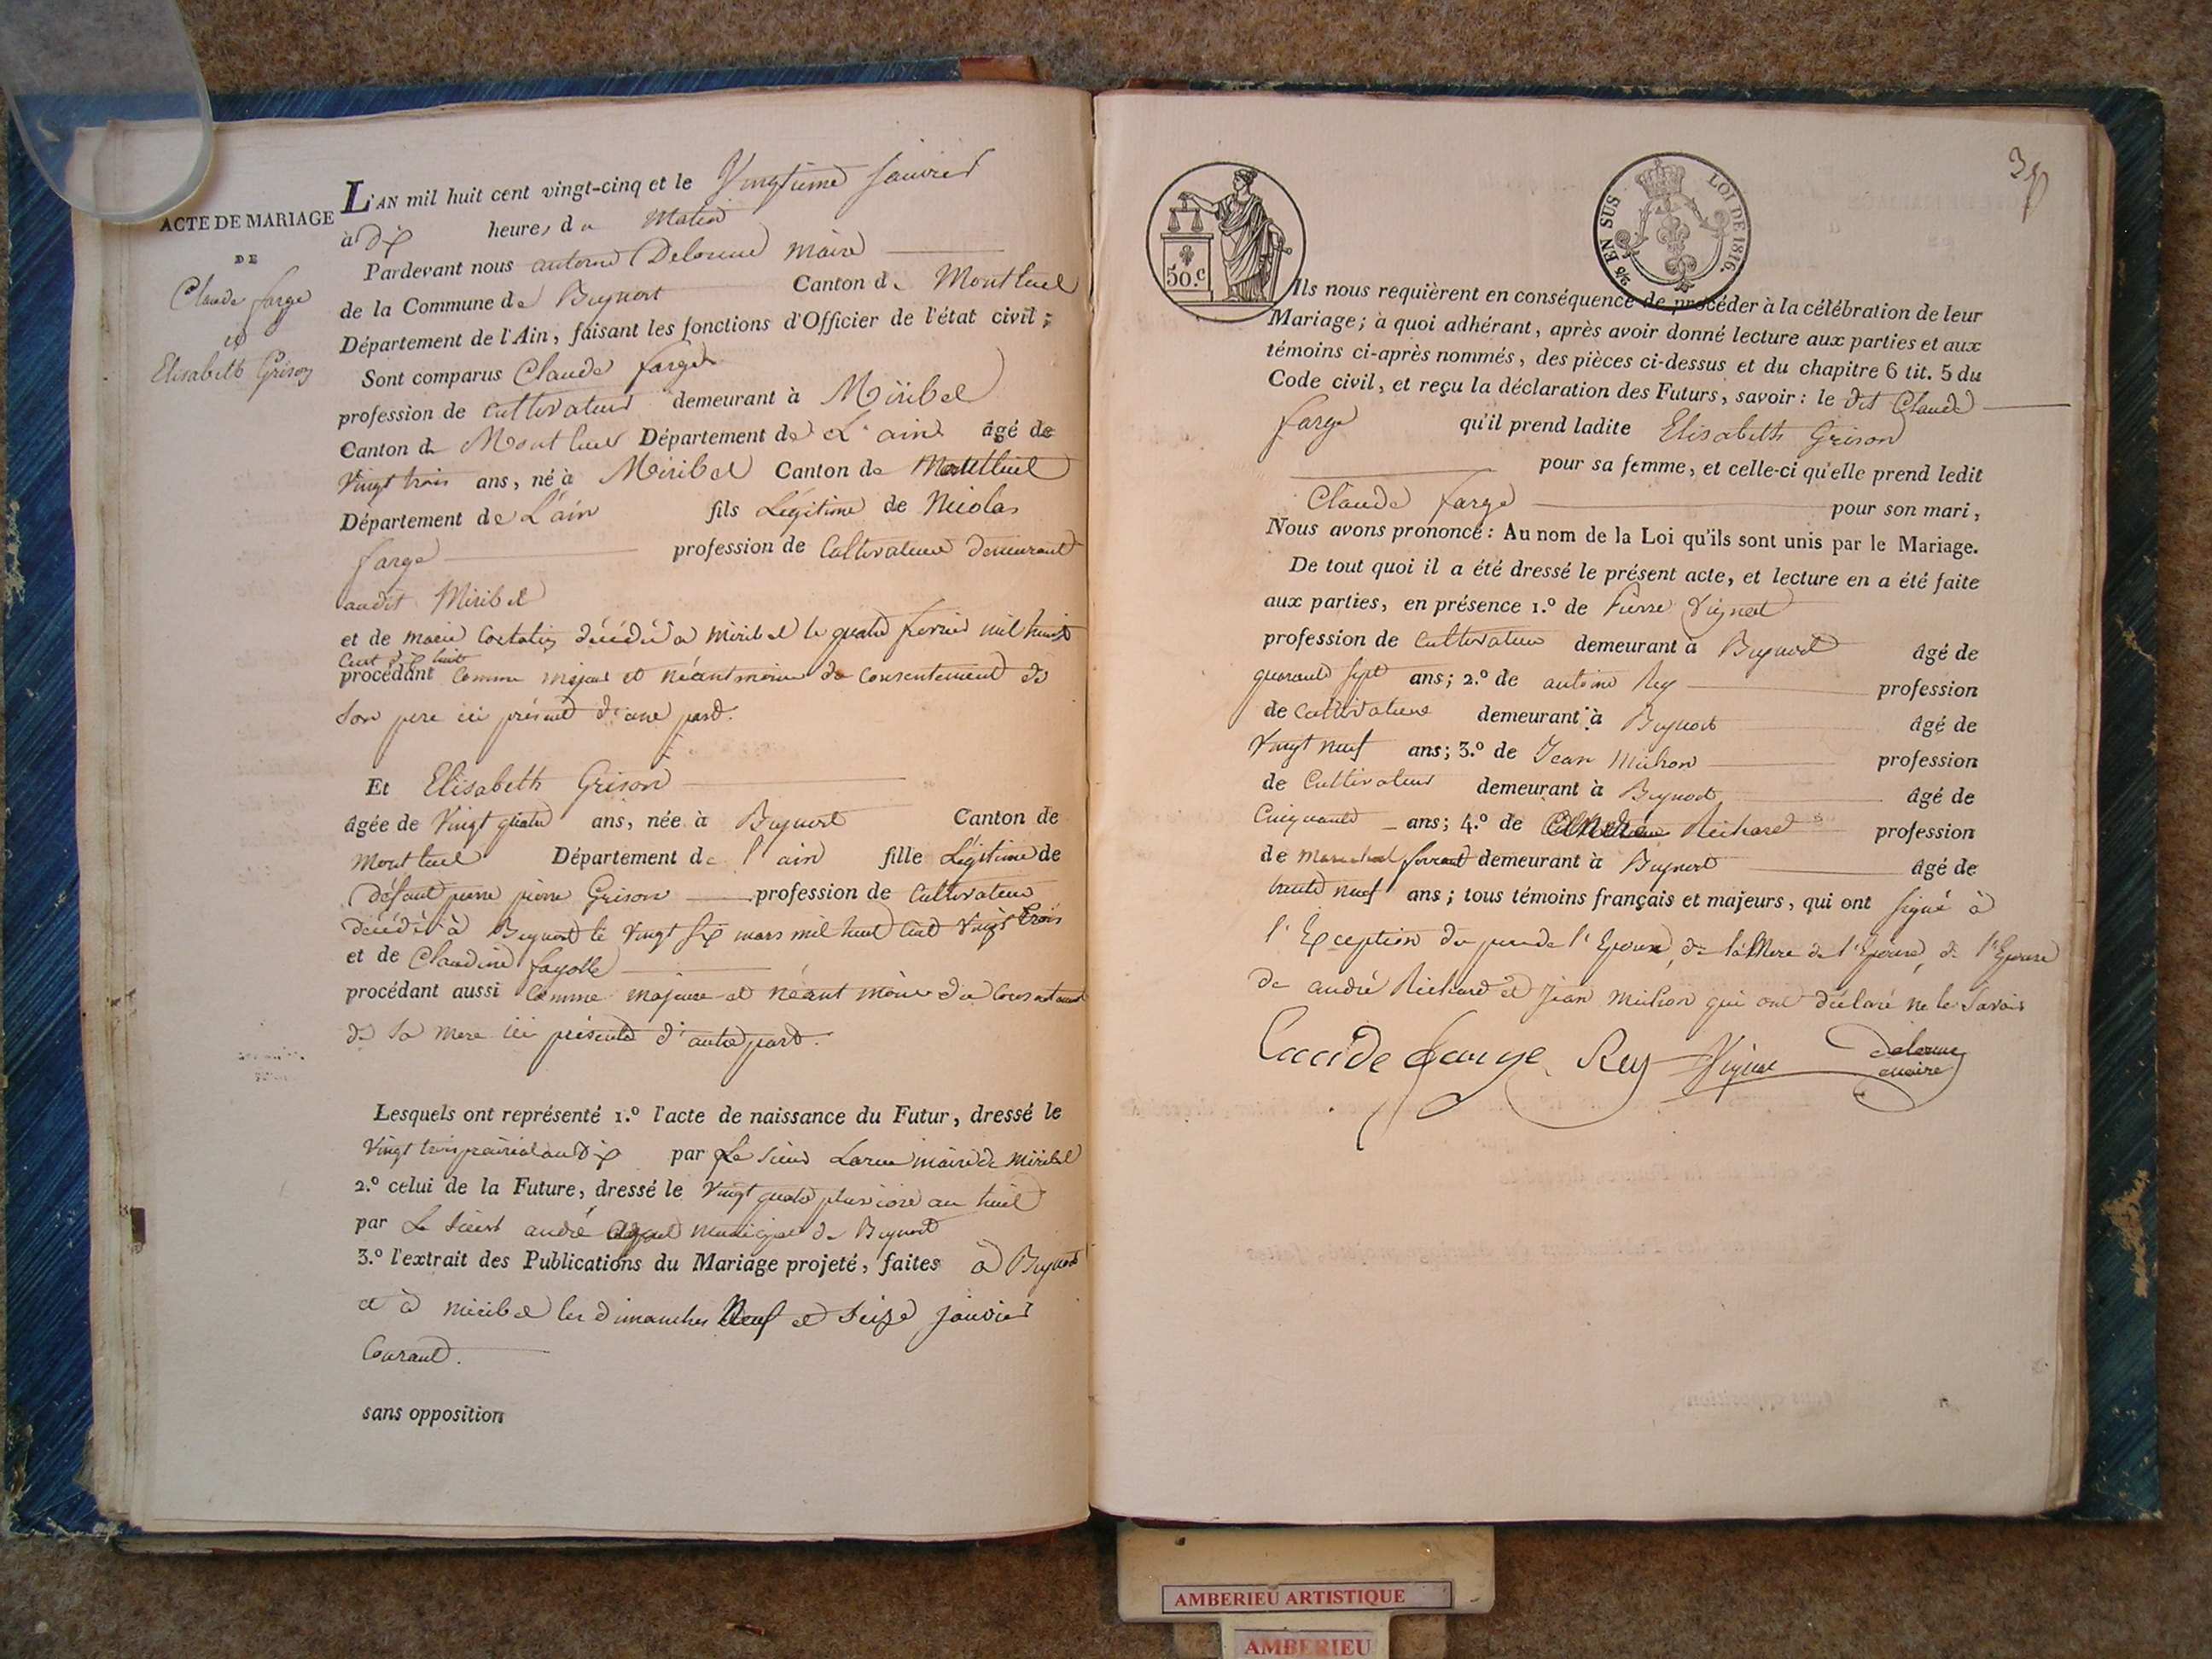 ACTE DE MARIAGE
DE
Claude farge
et
Elisabeth Grison
L'AN mil huit cent vingt-cinq et le Vingtieme Janvier
à dix heures du Matin
Pardevant nous antoine Delorme Maire
de la Commune de Beynost Canton de Montluel
Département de l'Ain, faisant les fonctions d'Officier de l'état civil;
Sont comparus Claude farge
profession de cultivateur demeurant à Miribel
Canton de Montluel Département de L'ain âgé de
Vingt trois ans, né à Miribel Canton de Montluel
Département de L'ain fils Légitime de Nicolas
farge profession de Cultivateur demeurant
audit Miribel
et de marie décédée a miribel le quatre fevrier mil huit
Cent dix huit
procédant comme majeur et néantmoins du consentement de
son pere ici présent d'une part.
Et Elisabeth Grison
âgée de Vingt quatre ans, née à Beynost Canton de
Montluel Département de l'ain fille Légitime de
défunt pierre Grison profession de Cultivateur
décédé à Beynost le vingt six mars mil huit cent vingt trois
et de Claudine fayolle
procédant aussi comme majeure et néant moins du consentement
de sa mere ici présente d'autre part.
Lesquels ont représenté 1.º l'acte de naissance du Futur, dressé le
Vingt trois prairial an dix par Le sieur Larue maire de Miribel
2.º celui de la Future, dressé le Vingt quatre pluviose an huit
par Le sieur andré agent municipal de Beynost
3.º l'extrait des Publications du Mariage projeté, faites à Beynost
et à miribel les dimanches Neuf et seize janvier
Courant.
sans opposition
50.c
2/6 EN SUS
LOI DE 1816.
Ils nous requièrent en conséquence de procéder à la célébration de leur
Mariage; à quoi adhérant, après avoir donné lecture aux parties et aux
témoins ci-après nommés, des pièces ci-dessus et du chapitre 6 tit. 5 du
Code civil, et reçu la déclaration des Futurs, savoir: le dit Claude
farge qu'il prend ladite Elisabeth Grison
pour sa femme, et celle-ci qu'elle prend ledit
Claude farge pour son mari,
Nous avons prononcé: Au nom de la Loi qu'ils sont unis par le Mariage.
De tout quoi il a été dressé le présent acte, et lecture en a été faite
aux parties, en présence 1.º de Pierre Vignat
profession de cultivateur demeurant à Beynost âgé de
quarante sept ans; 2.º de antoine Rey profession
de Cultivateur demeurant à Beynost âgé de
Vingt neuf ans; 3.º de Jean Michon profession
de Cultivateur demeurant à Beynost âgé de
Cinquante ans; 4.º de Richard profession
de marechal ferrant demeurant à Beynost âgé de
trente neuf ans; tous témoins français et majeurs, qui ont signé à
l'Exception du pere de l'Epoux, de la Mere de l'Epouse, de l'Epouse
de andré Richard et Jean Michon qui ont déclaré ne le Savoir
Claude farge Rey Vignat Delorme
maire
AMBERIEU ARTISTIQUE
AMBERIEU